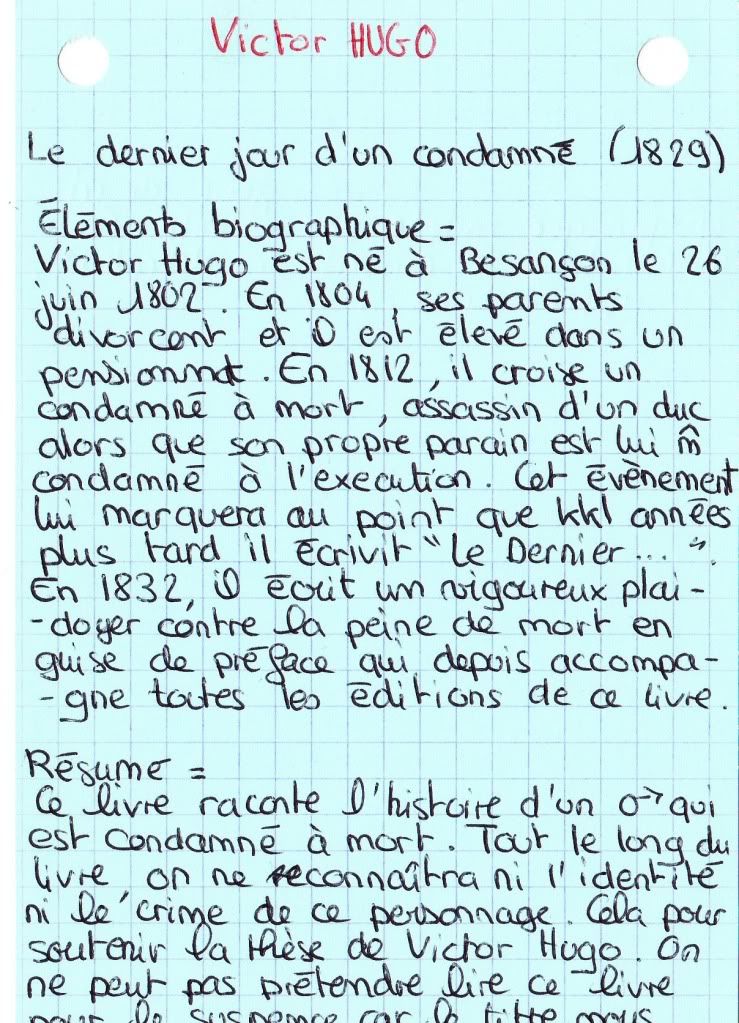 Victor HUGO
Le dernier jour d'un condamné (1829)
Éléments biographique =
Victor Hugo est né à Besançon le 26
juin 1802. En 1804, ses parents
divorcent et il est élevé dans un
pensionnat. En 1812, il croise un
condamné à mort, assassin d'un duc
alors que son propre parain est lui m̂
condamné à l'execution. Cet évènement
lui marquera au point que kkl années
plus tard il écrivit "Le Dernier... ".
En 1832, il écrit un vigoureux plai-
-doyer contre la peine de mort en
guise de préface qui depuis accompa-
-gne toutes les éditions de ce livre.
Résume =
Ce livre raconte l'histoire d'un o→ qui
est condamné à mort. Tout le long du
livre, on ne reconnaîtra ni l'identité
ni le crime de ce personnage. Cela pour
soutenir la thèse de Victor Hugo. On
ne peut pas prétendre lire ce livre
pour le suspence car le titre nous